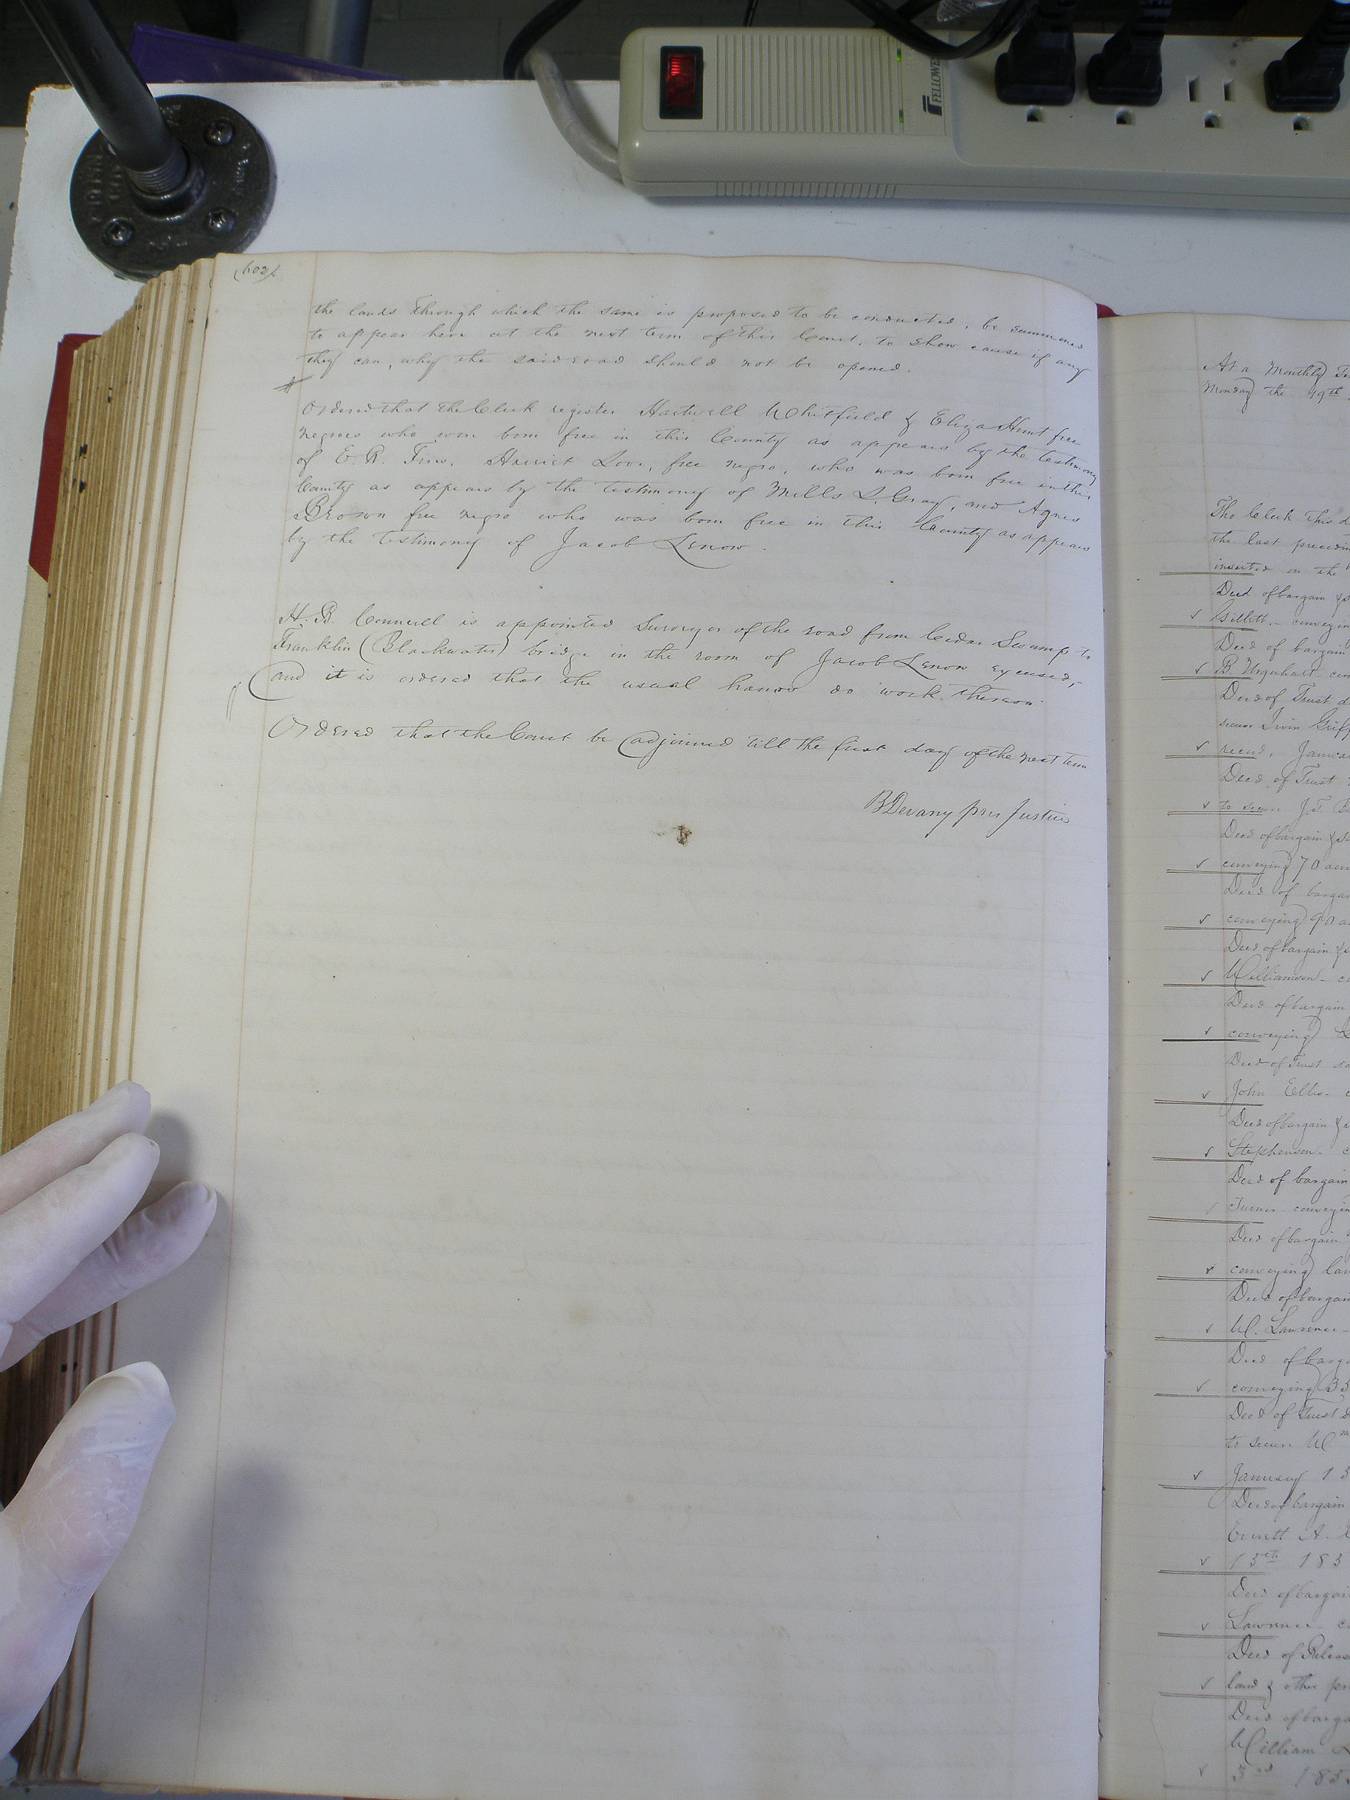 FELLOWES
(602)
the lands through which the same is proposed to be conducted, be summoned
to appear here at the next term of this Court, to show cause if any
they can, why the said road should not be opened.
Ordered that the Clerk register Hartwell Whitfield & Eliza Hunt free
negroes who were born free in this County as appears by the testimony
of E. R. Harriet Love, free negro, who was born free in this
County as appears by the testimony of Mills L. Gray, and Agnes
Brown free negro who was born free in this County as appears
by the testimony of Jacob Lenow.
H. B. Council is appointed Surveyor of the road from Cedar Swamp to
Franklin (Blackwater) bridge in the room of Jacob Lenow excused,
and it is ordered that the usual hands do work thereon.
Ordered that the Court be adjourned till the first day of the next term
B Devany pres Justice
At a Monthly
Monday the 19th
The Clerk this
the last
inserted on the
Deed of bargain &
conveying
Deed of bargain
B Urquhart
Deed of Trust
secure Irvin
Deed of Trust
to secure J. T.
Deed of bargain &
conveying 70
Deed of bargain
conveying 90
Deed of bargain &
Williamson
Deed of bargain
conveying
Deed of Trust
John Ellis
Deed of bargain &
Stephenson
Deed of bargain
Turner conveying
Deed of bargain
conveying
Deed of bargain
W. Lawrence
Deed of
conveying
Deed of Trust
to secure Wm
January
Deed of bargain
13th 185
Deed of bargain
Lawrence
Deed of
land & other
Deed of
William
3rd 185